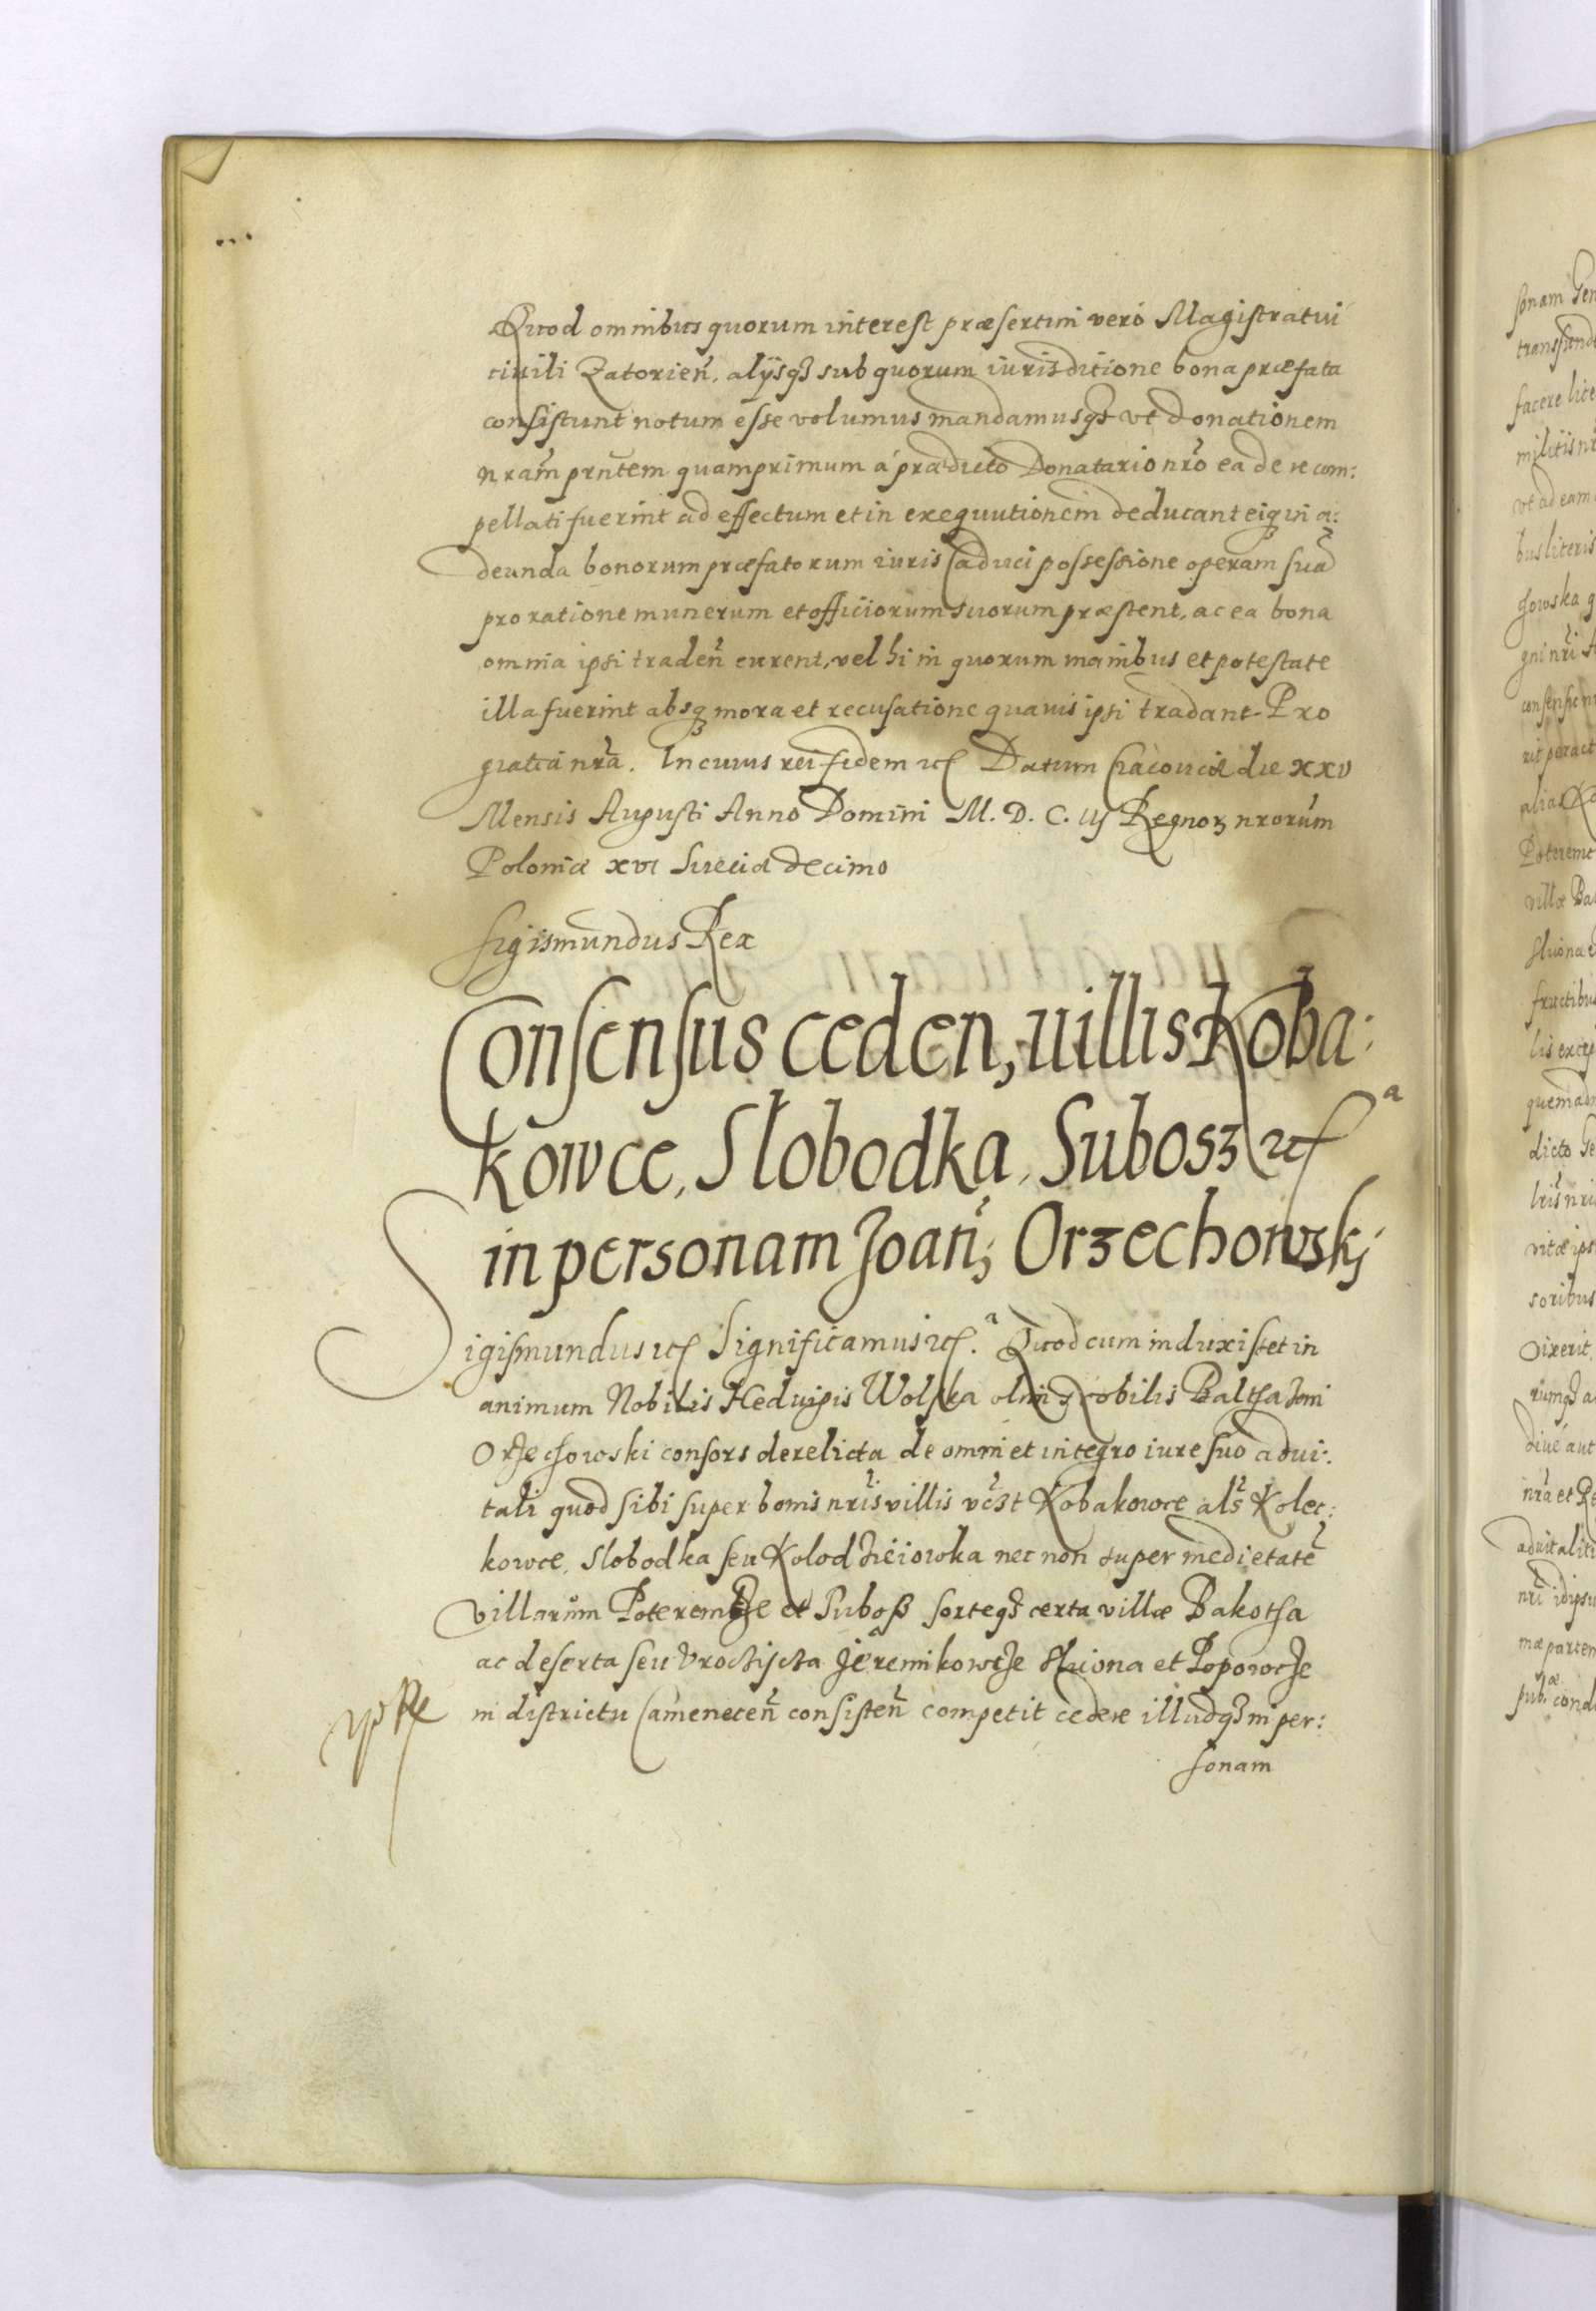 Quod omnibus quorum interest præsertim vero Magistratui
ciuili Zatorien̄. alijsqȝ sub quorum iurisdictione bona præfata
consistunt notum esse volumus mandamusqȝ vt donationem
nram̄ prn̄tem quamprimum á prædicto Donatario nr̄o ea de re com:
pellati fuerint ad effectum et in exequutionem deducant eiqȝ in a:
deunda bonorum præfatorum iuris caduci possessione operam suā
pro ratione munerum et officiorum suorum præstent, ac ea bona
omnia ipsi traden̄ curent, vel hi in quorum manibus et potestate
illa fuerint absqȝ mora et recusatione quauis ipsi tradant. Pro
gratia nr̄a. In cuius rei fidem etc Datum Cracouiæ die XXV
Mensis Augusti Anno Domini M. D. C. iij Regnoꝝ nrorum̄
Poloniæ xvi Sueciæ decimo
Sigismundus Rex
Consensus ceden, uillis Koba:
kowce, Słobodka, Subosz etc ᵃ
in personam Joan̄; Orzechowskj
Sigismundus etc Significamus etc.ᵃ Quod cum induxisset in
animum Nobilis Heduigis Wolska olim Nobilis Balthasari
Orzechowski consors derelicta de omni et integro iure suo adui:
tali quod sibi super bonis nr̄is villis vc̄zt Kobakowce als̄ Kolec:
kowce, Slobodka seu Kolodzieiowka nec non super medietatē
villarum Poteremcze et Suboß sorteqȝ certa villæ Bakotha
ac deserta seu Vrochischa Jeremikowcze Sluiona et Popowcze
in districtu Camenecen̄ consisten̄ competit cedere illudqȝ in per:
sonam